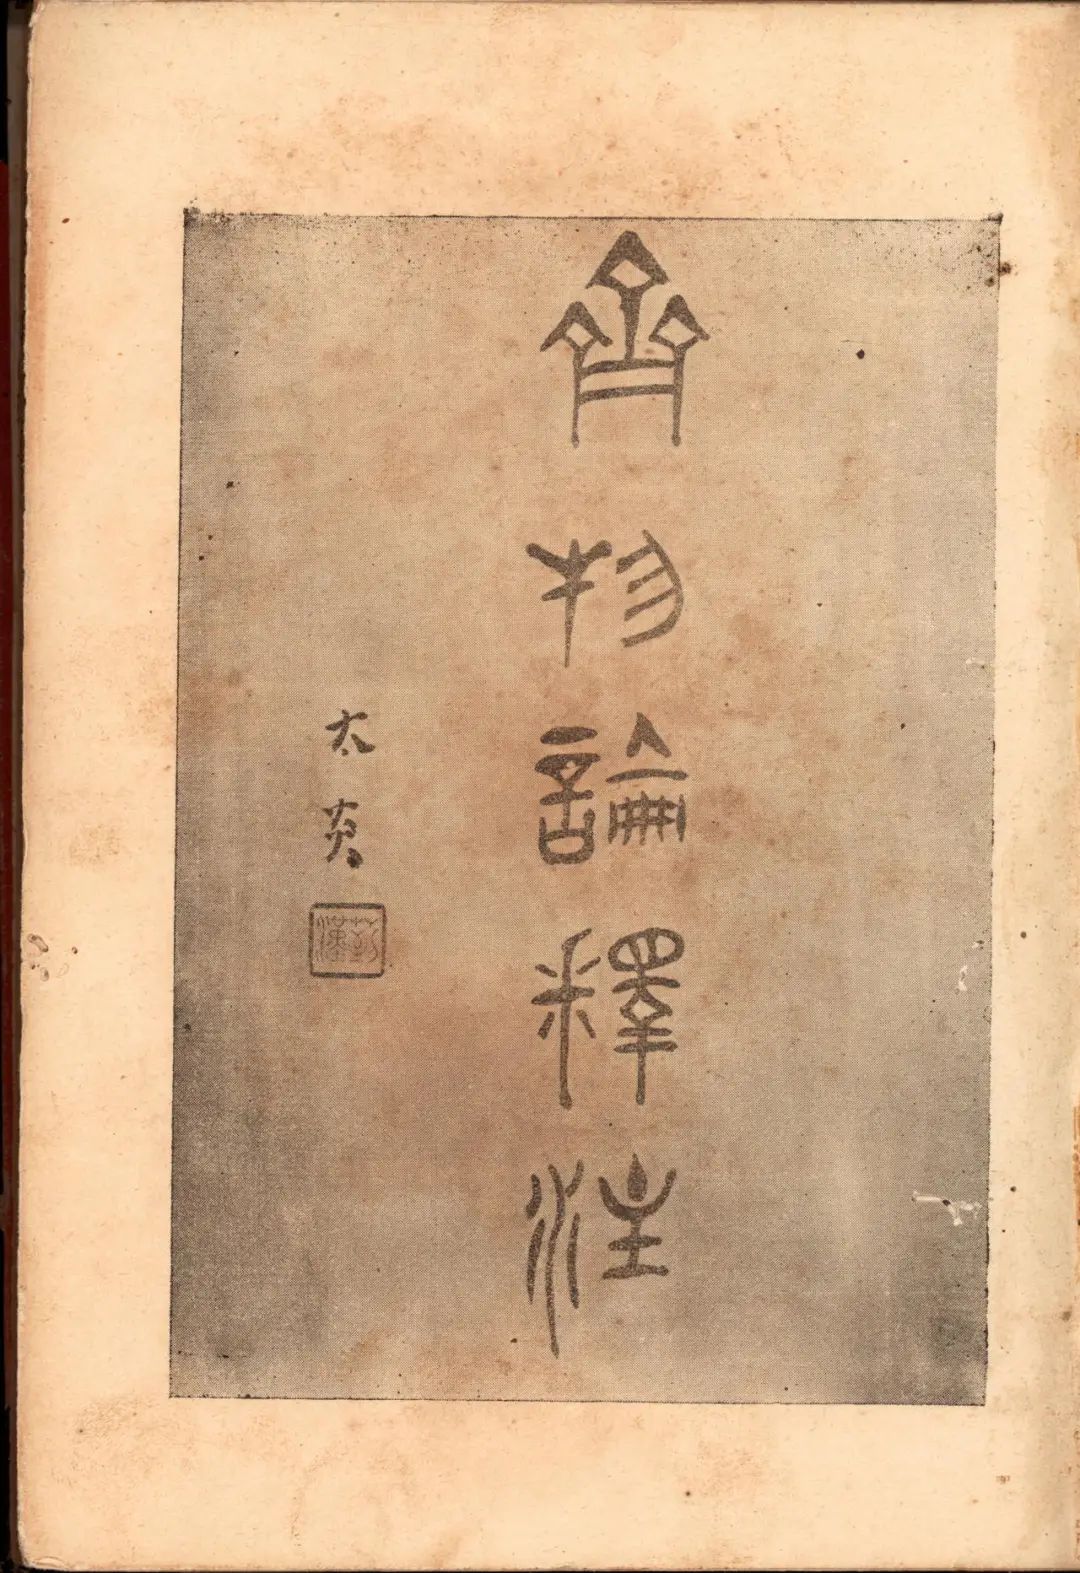 齊物論釋注
太炎